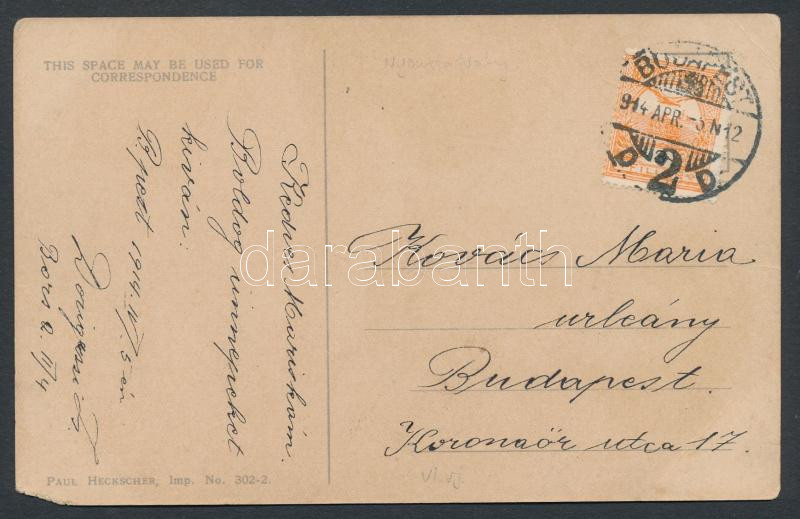 THIS SPACE MAY BE USED FOR
CORRESPONDENCE
Kedves Mariskám.
Boldog ünnepeket
kiván:
Bpest 1914. IV/5-én
Bors u. II/4
PAUL HECKSCHER, Imp. No. 302-2.
Nyomtatvány
BUDAPEST
914 APR. -5 N12
2
darabanth
Kovács Maria
urleány
Budapest.
Koronaör utca 17.
VI. ij.